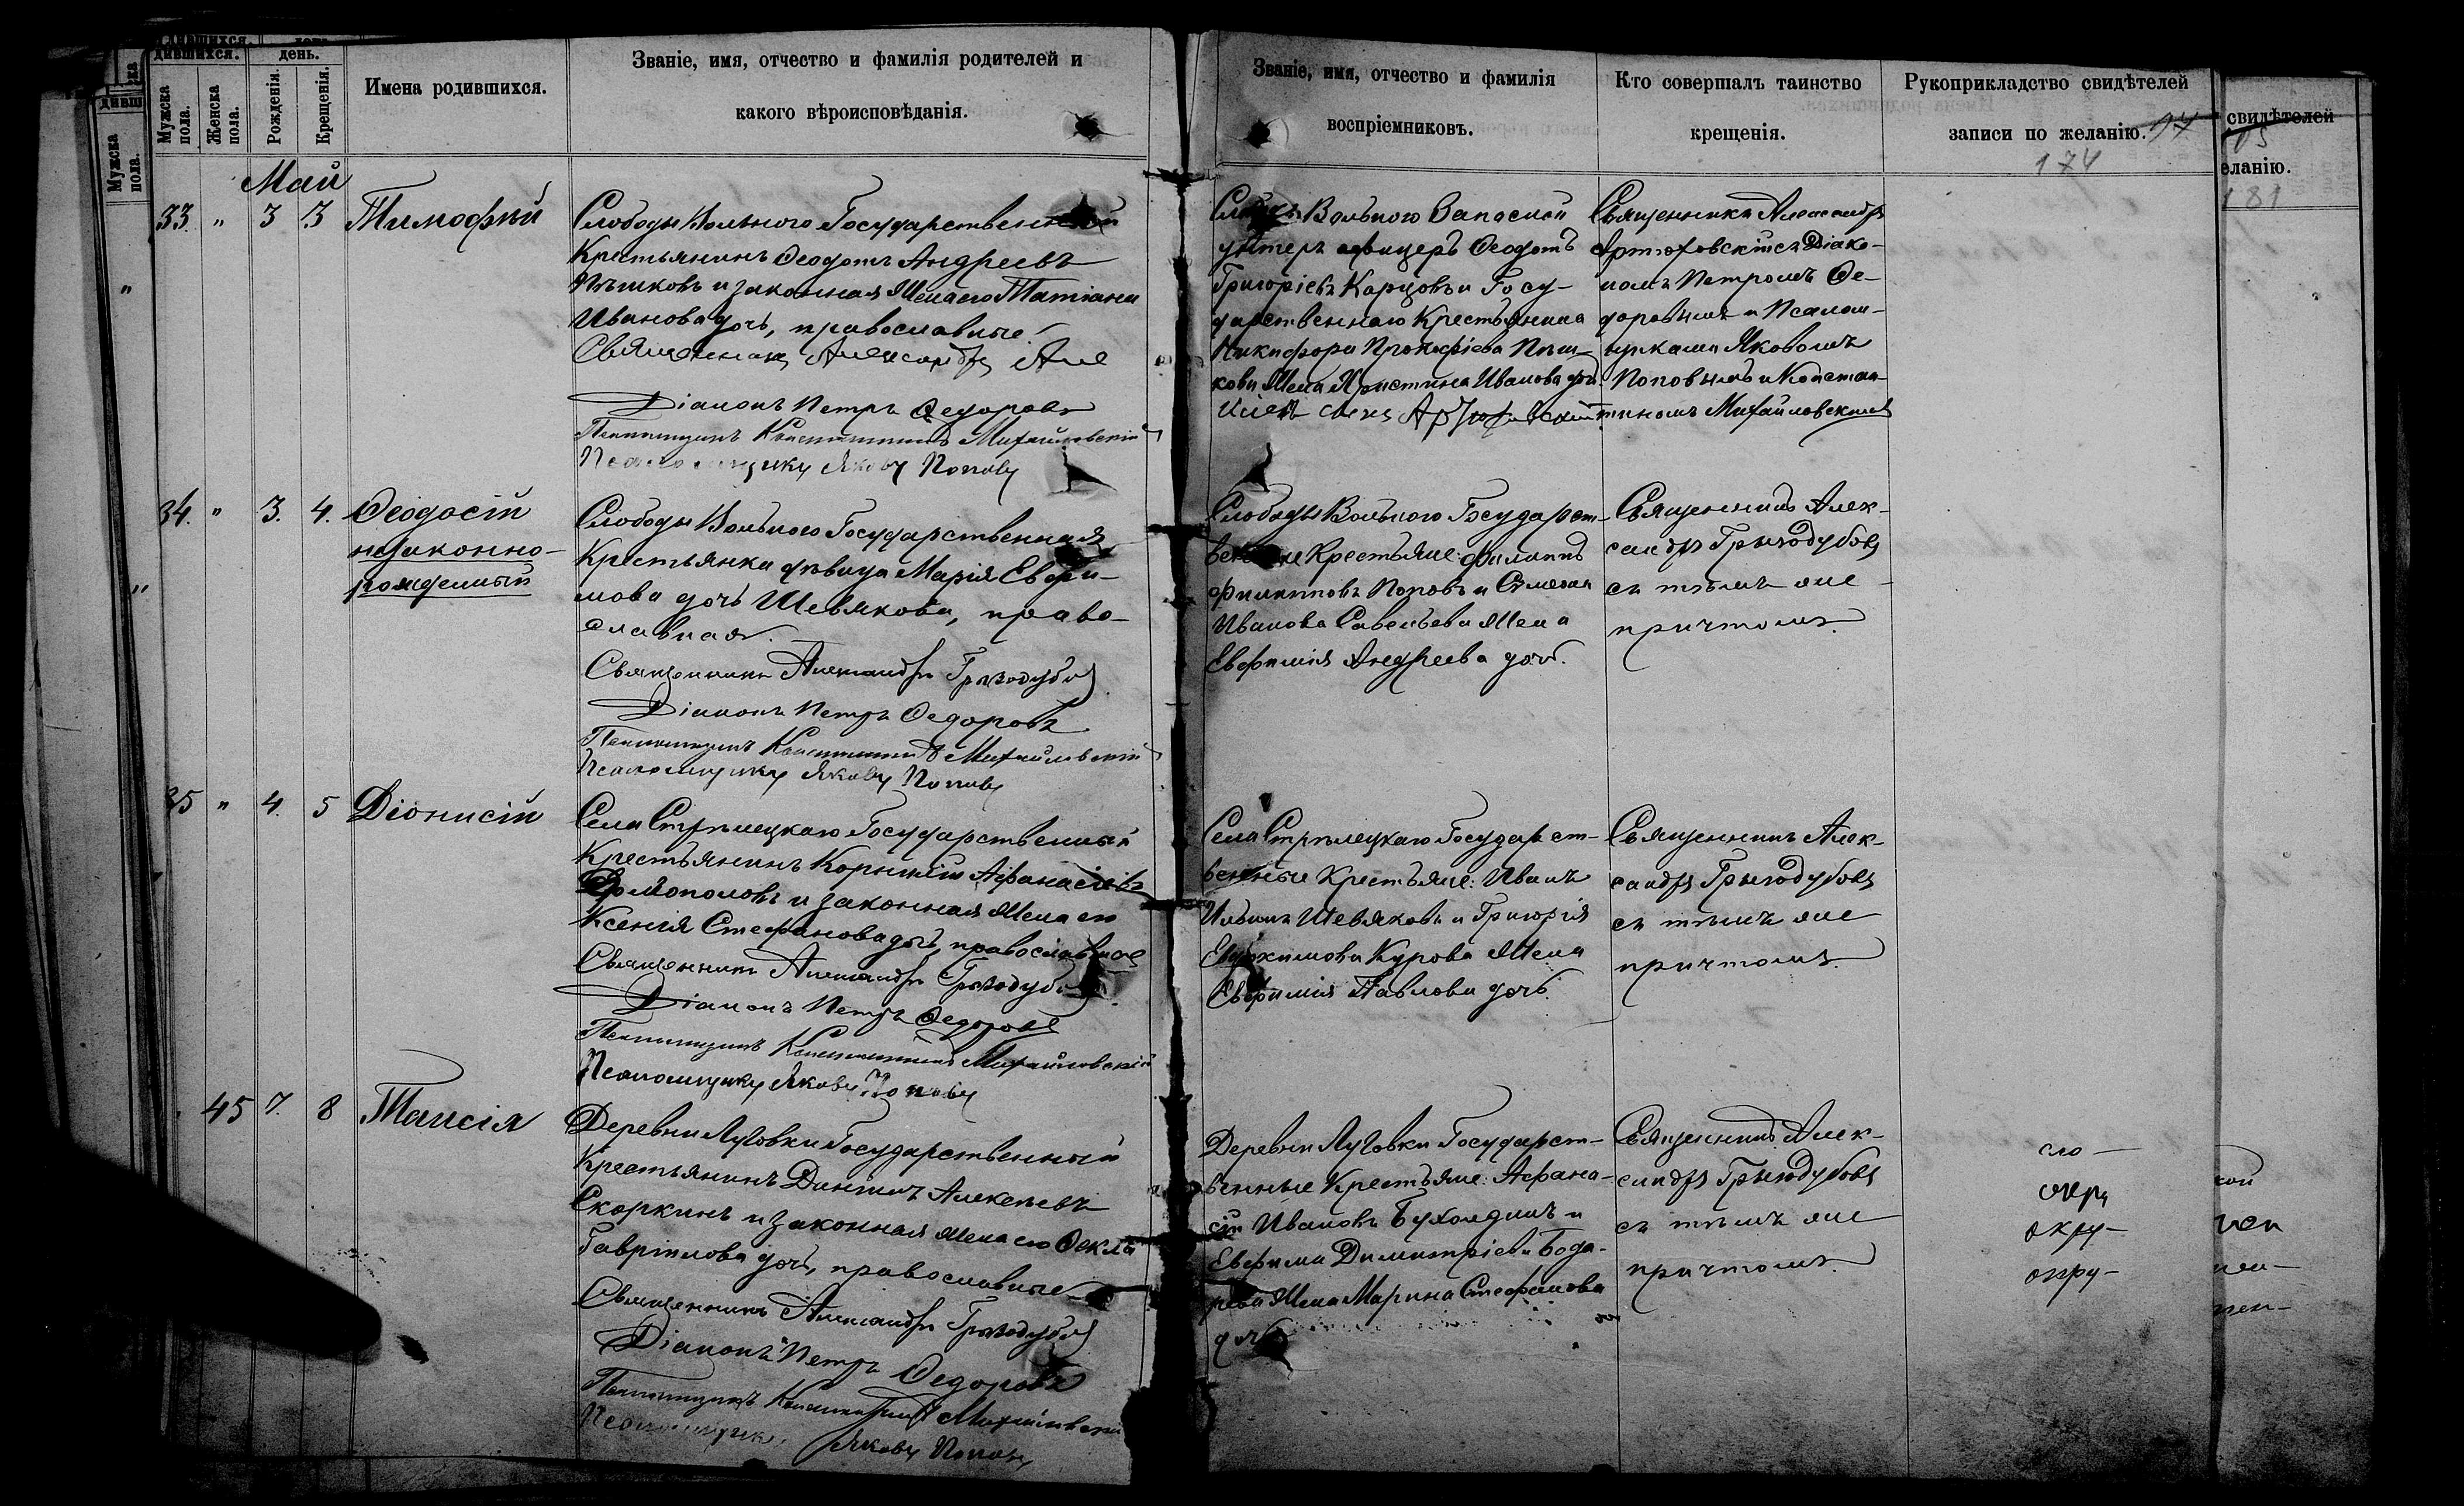 дившихся.
день.
Мужска пола.
Женска пола.
Рожденія.
Крещенія.
Имена родившихся.
Званіе, имя, отчество и фамилія родителей и
какого вѣроисповѣданія.
Званіе, имя, отчество и фамилія
воспріемниковъ.
Кто совершалъ таинство
крещенія.
Рукоприкладство свидѣтелей
записи по желанію.
174
свидѣтелей
еланію.
181
Мужска пола.
Май
33. " 3 3 Тимофѣй
Слободы Вольного Государственной
Крестьянинъ Ѳеодотъ Андреевъ
Пѣшковъ и законная жена его Татіана
Иванова дочь, православные.
Священникъ Александръ
Діаконъ Петръ Ѳедоровъ
Псаломщикъ Константинъ Михайловскій
Псаломщикъ Яковъ Поповъ
Вольного Запасной
унтеръ офицеръ Ѳеодотъ
Григоріевъ Карцовъ и Госу-
дарственнаго Крестьянина
Никифора Прокофіева Пѣш-
кова жена Христина Иванова доч.
Священникъ Александръ
Артюховскій съ Діако-
номъ Петромъ Ѳе-
доровымъ и Псалом-
щиками Яковомъ
Поповымъ и Констан-
тиномъ Михайловскимъ
34. " 3. 4. Ѳеодосій
незаконно-
рожденный
Слободы Вольного Государственная
Крестьянка дѣвица Марія Евфи-
мова дочь Шевякова, право-
славная.
Священникъ Александръ Грызодубовъ
Діаконъ Петръ Ѳедоровъ
Псаломщикъ Константинъ Михайловскій
Псаломщикъ Яковъ Поповъ
Слободы Вольного Государст-
венные Крестьяне: Филиппъ
Филипповъ Поповъ и
Иванова Савельева жена
Евфимія Андреева дочь.
Священникъ Алек-
сандръ Грызодубовъ
съ тѣмъ же
причтомъ.
35 " 4. 5 Діонисій
Села Стрѣлецкаго Государственный
Крестьянинъ Корнилій Афанасіевъ
и законная жена его
Ксенія Стефанова дочь, православные
Священникъ Александръ Грызодубовъ
Діаконъ Петръ Ѳедоровъ
Псаломщикъ Константинъ Михайловскій
Псаломщикъ Яковъ Поповъ
Села Стрѣлецкаго Государст-
венные Крестьяне: Иванъ
Ильинъ Шевяковъ и Григорія
Евдокимова Курова жена
Евфимія Павлова дочь.
Священникъ Алек-
сандръ Грызодубовъ
съ тѣмъ же
причтомъ.
45 7. 8 Таисія
Деревни Луговки Государственный
Крестьянинъ Даніилъ Алексѣевъ
Скоркинъ и законная жена его Ѳекла
Гавріилова дочь, православные
Священникъ Александръ Грызодубовъ
Діаконъ Петръ Ѳедоровъ
Псаломщикъ Константинъ Михайловскій
Псаломщикъ Яковъ Поповъ
Деревни Луговки Государст-
венные Крестьяне: Афана-
сій Ивановъ и
Евфима Димитріева Бода-
рева жена Марина Стефанова
дочь
Священникъ Алек-
сандръ Грызодубовъ
съ тѣмъ же
причтомъ.
сло-
окру-
окру-